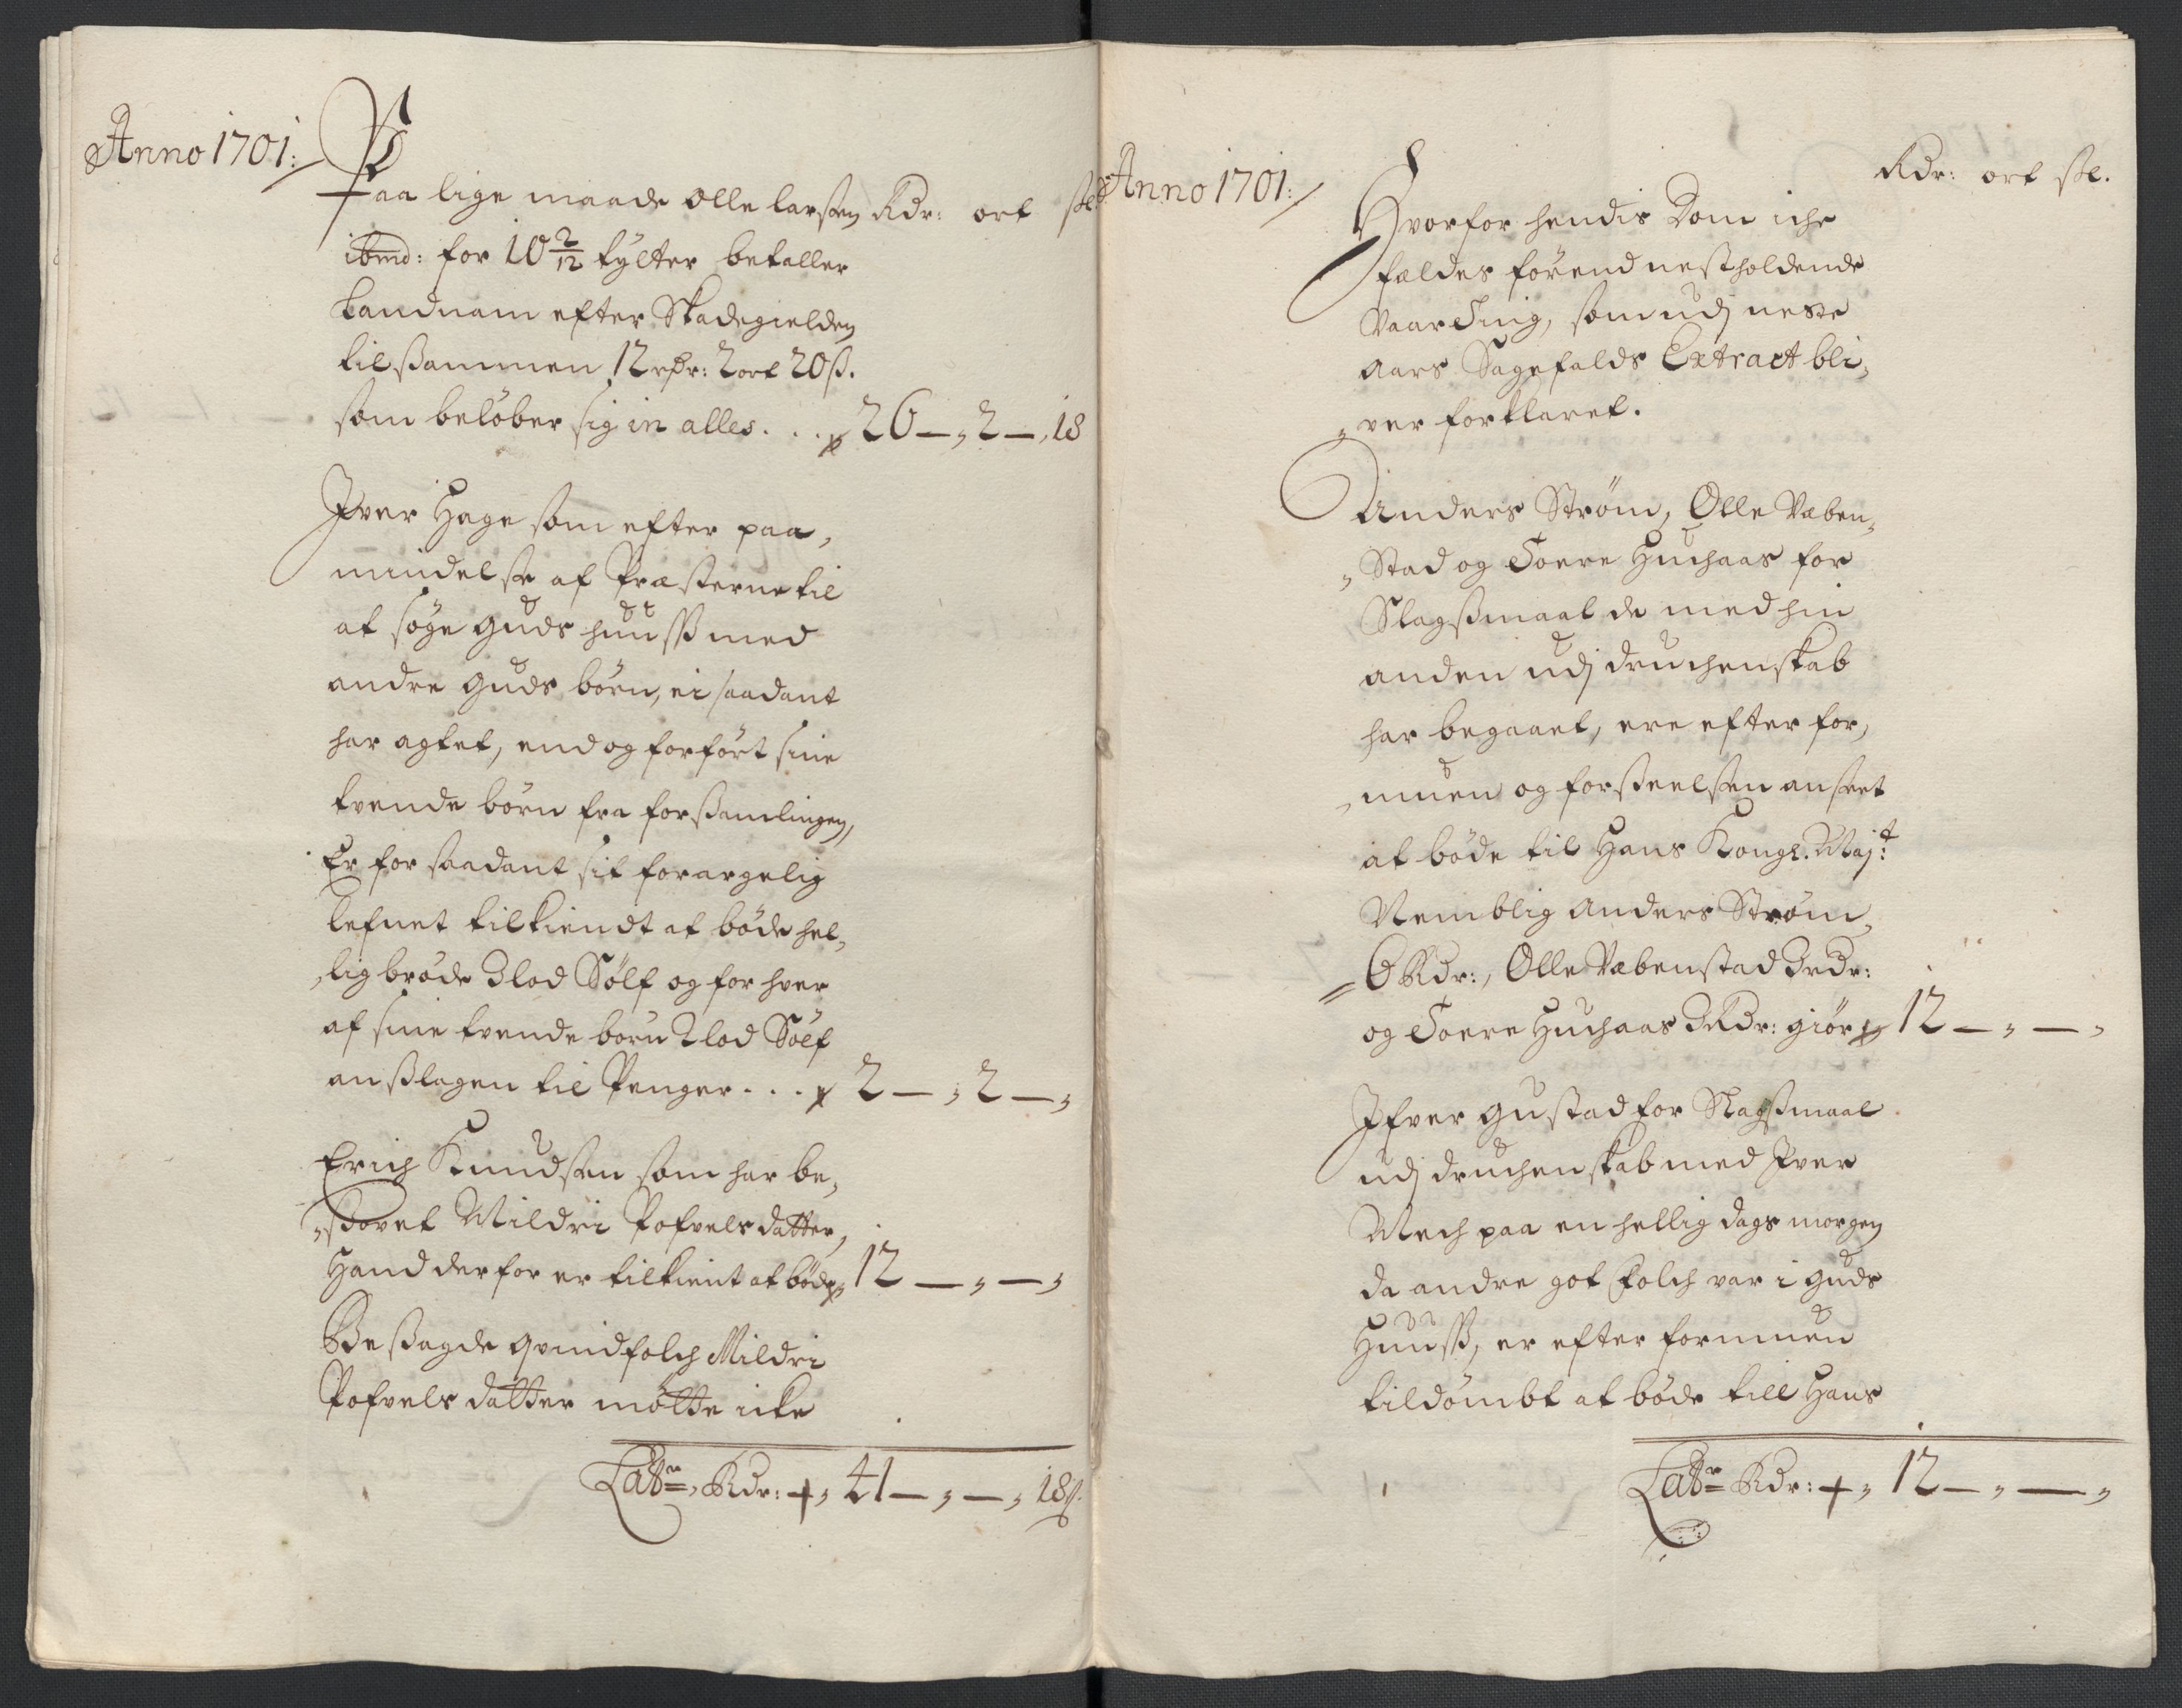 Anno 1701:
Paa lige maade Olle larsen Rdr: ort sk
ibmd: for 10 2/12 tylter betaller
Landnam efter Skadegielden
tilsammen 12 rdr: 2 ort 20 s.
som beløber sig in alles . . . 26 — 2 — 18
Iver Hage som efter paa,
mindelse af Præsterne til
at søge Guds huuss med
andre Guds børn, ei saadant
har agtet, end og forført sine
tvende børn fra forsamlingen,
Er for saadant sit forargelig
lefnet tilkiendt at bøde hel,
,lig brøde 3 lod Sølf og for hver
af sine tvende børn 2 lod Sølf
anslagen til Penger . . . 2 — , 2 — ,
Erich Knudsen som har be,
,sovet Mildri Pofvels datter,
Hand derfor er tilkient at bøde 12 — , — ,
Besagde qvindfolch Mildri
Pofvels datter møtte icke
Latr. Rdr: + , 41 — , — , 18 s.
Anno 1701:
Rdr: ort sk.
Hvorfor hendis Dom iche
fældes førend nestholdende
Vaar Ting, som udj neste
Aars Sagefalds Extract bli,
,ver forklaret.
Anders Strøm, Olle Væben,
,Stad og Toere Huchaas for
Slagsmaal de med hin
anden udj druchenskab
har begaaet, ere efter for,
,muen og forseelsen anseet
at bøde til Hans Kongl. Maj:t
Nemblig Anders Strøm,
6 Rdr:, Olle Væbenstad 3 rdr:
og Toere Huchaas 3 Rdr: giør 12 — , — ,
Ifver Gustad for Slagsmaal
udj druchenskab med Iver
Mech paa en hellig dags morgen
da andre got Folch var i Guds
Huuss, er efter formuen
tildømbt at bøde till Hans
Latr. Rdr: + , 12 — , — ,